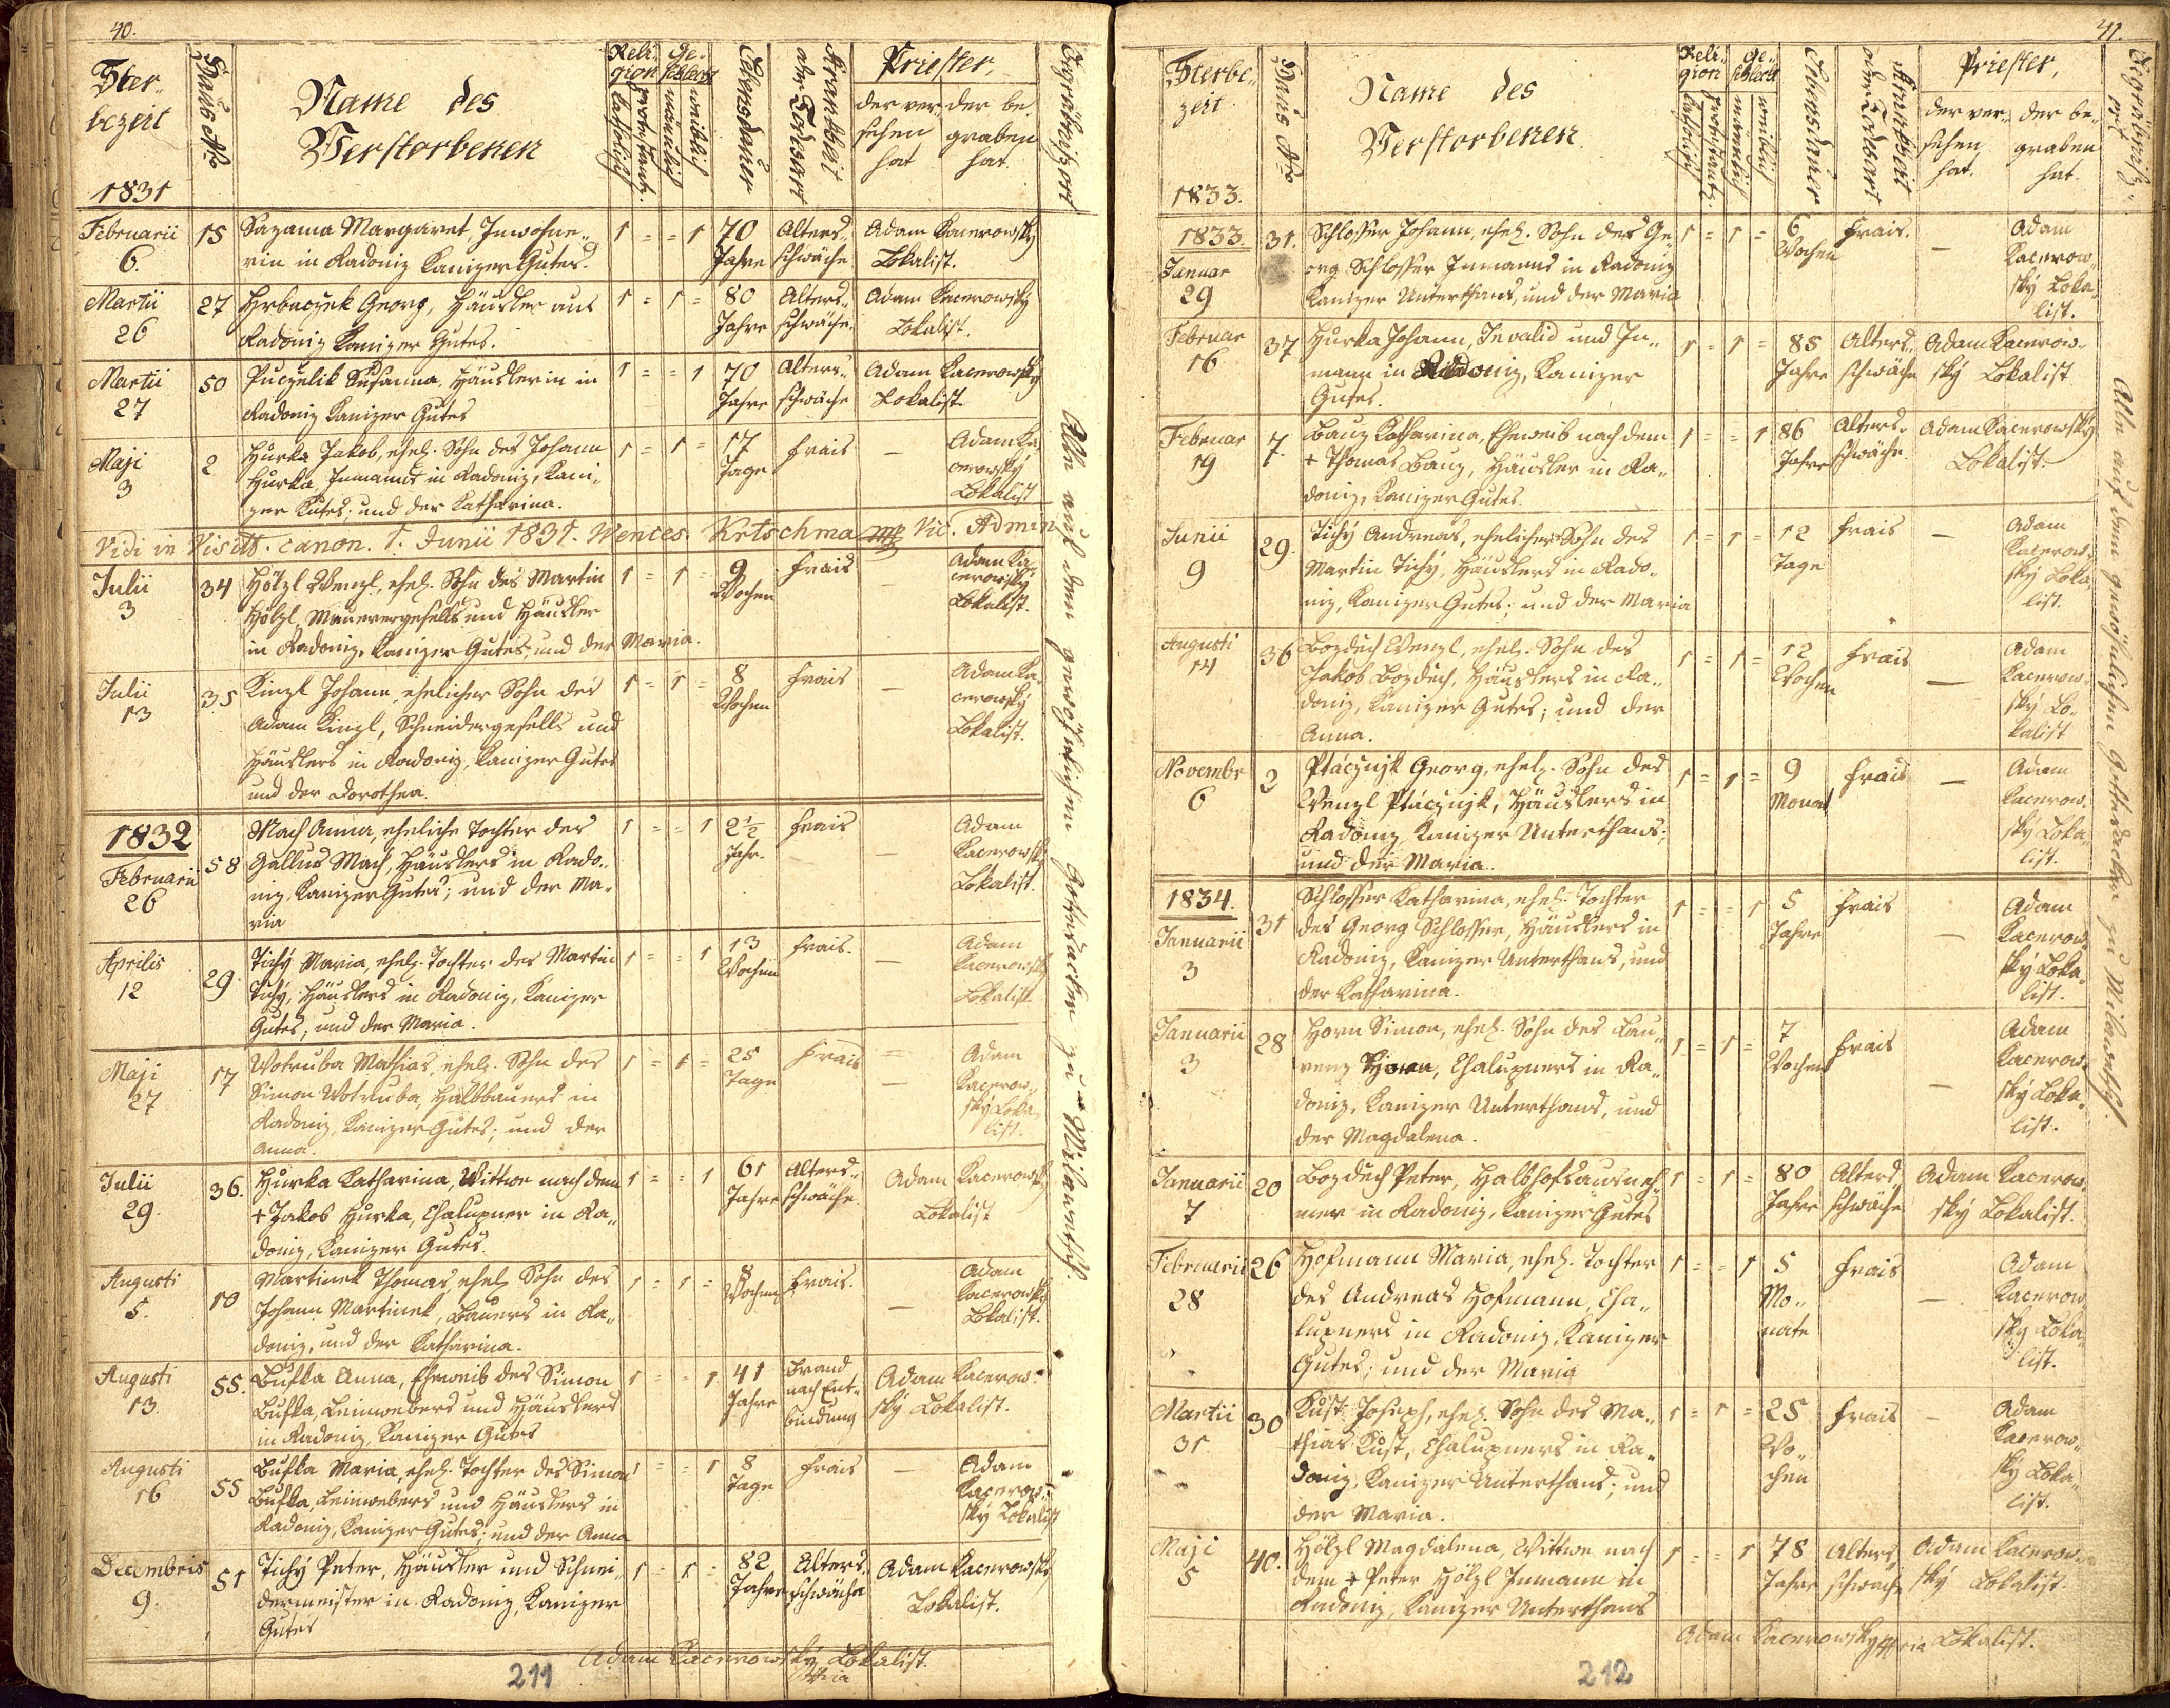 40.
Ster-
bezeit
1831
Haus No
Name des
Verstorbenen
Reli-
gion
katholisch
protestant.
Ge-
schlecht
männlich
weiblich
Lebensdauer
Krankheit
oder Todesart
Priester,
der ver-
sehen
hat
der be-
graben
hat.
Begräbnißort
Februarii
6.
15
Sazama Margaret, Inwohne-
rin in Radoniz Kanizer Gutes.
1 = = 1
70
Jahre
Alters-
schwäche
Adam Kacerowsky
Lokalist.
Martii
26
27
Georg, Häusler aus
Radoniz Kanizer Gutes.
1 = 1 =
80
Jahre
Alters-
schwäche.
Adam Kacerowsky
Lokalist.
Martii
27
50
Susanna, Häuslerin in
Radoniz Kanizer Gutes
1 = = 1
70
Jahre
Alters-
schwäche
Adam Kacerowsky
Lokalist.
Maji
3
2
Hurka Jakob, ehel. Sohn des Johann
Hurka Inmanns in Radoniz, Kani-
zer Gutes; und der Katharina.
1 = 1 =
17
Tage
Frais
—
Adam Ka-
cerowsky
Lokalist
Vidi in Visitt. canon. 1. Junii 1831. Wences. Kretschma mp Vic. Admin
Julii
3
34
Hölzl Wenzl, ehel. Sohn des Martin
Hölzl, Maurergesells und Häusler
in Radoniz, Kanizer Gutes, und der Maria.
1 = 1 =
9
Wochen
Frais
—
Adam Ka-
cerowsky
Lokalist.
Julii
13
35
Kinzl Johann, ehelicher Sohn des
Adam Kinzl, Schneidergesells und
Häuslers in Radoniz, Kanizer Gutes
und der Dorothea.
1 = 1 =
8
Wochen
Frais
—
Adam Ka-
cerowsky
Lokalist.
1832
Februarii
26
58
Mach Anna, eheliche Tochter des
Gallus Mach, Häuslers in Rado-
niz, Kanizer Gutes; und der Ma-
ria
1 = = 1
2½
Jahr.
Frais
—
Adam
Kacerowsky
Lokalist.
Aprilis
12
29.
Tichý Maria, ehel. Tochter des Martin
Tichý, Häuslers in Radoniz, Kanizer
Gutes; und der Maria.
1 = = 1
13
Wochen
Frais.
—
Adam
Kacerowsky
Lokalist.
Maji
27
17
Wotruba Mathias, ehel. Sohn des
Simon Wotruba, Halbbauers in
Radoniz, Kanizer Gutes; und der
Anna.
1 = 1 =
25
Tage
Frais
—
Adam
Kacerow-
sky Loka-
list.
Julii
29.
36.
Hurka Katharina, Wittwe nach dem
+ Jakob Hurka, Chalupner in Ra-
doniz, Kanizer Gutes.
1 = = 1
61
Jahre
Alters-
schwäche
Adam Kacerowsky
Lokalist
Augusti
5.
10
Martinek Thomas, ehel. Sohn des
Johann Martinek, Bauers in Ra-
doniz, und der Katharina.
1 = 1 =
8
Wochen
Frais.
—
Adam
Kacerowsky
Lokalist.
Augusti
13.
55.
Anna, Eheweib des Simon
Leinwebers und Häuslers
in Radoniz, Kanizer Gutes
1 = = 1
41
Jahre
Brand
nach Ent-
bindung
Adam Kacerow-
sky Lokalist.
Augusti
16
55
Maria, ehel. Tochter des Simon
Leinwebers und Häuslers in
Radoniz, Kanizer Gutes; und der Anna
1 = = 1
8
Tage
Frais
—
Adam
Kacerow-
sky Lokalist
Decembris
9.
51
Tichý Peter, Häusler und Schnei-
dermeister in Radoniz, Kanizer
Gutes
1 = 1 =
82
Jahre
Alters-
schwäche
Adam Kacerowsky
Lokalist.
Alle auf dem gewöhnlichen Gottesacker zu Milawetsch.
Adam Kacerowsky Lokalist.
211
41.
Sterbe-
zeit
1833.
Haus No
Name des
Verstorbenen.
Reli-
gion
katholisch
protestant.
Ge-
schlecht
männlich
weiblich
Lebensdauer
Krankheit
oder Todesart
Priester,
der ver-
sehen
hat.
der be-
graben
hat.
Begräbniß-
ort
1833.
Januar
29
31.
Schlosser Johann, ehel. Sohn des Ge-
org Schlosser Inmanns in Radoniz
Kanizer Unterthans, und der Maria
1 = 1 =
6
Wochen
Frais.
—
Adam
Kacerow-
sky Loka-
list.
Februar
16
37
Hurka Johann, Invalid und In-
mann in Radoniz, Kanizer
Gutes.
1 = 1 =
85
Jahre
Alters-
schwäche
Adam Kacerow-
sky Lokalist
Februar
19
7.
Bauz Katharina, Eheweib nach dem
+ Thomas Bauz, Häusler in Ra-
doniz, Kanizer Gutes
1 = = 1
86
Jahre
Alters-
schwäche.
Adam Kacerowsky
Lokalist.
Junii
9
29.
Tichý Andreas, ehelicher Sohn des
Martin Tichý, Häuslers in Rado-
niz, Kanizer Gutes; und der Maria
1 = 1 =
12
Tage
Frais
—
Adam
Kacerow-
sky Loka-
list.
Augusti
14
36
Bozdech Wenzl, ehel. Sohn des
Jakob Bozdech, Häuslers in Ra-
doniz, Kanizer Gutes; und der
Anna.
1 = 1 =
12
Wochen
Frais
—
Adam
Kacerow-
sky Lo-
kalist
Novembr
6
2
Georg, ehel. Sohn des
Wenzl Häuslers in
Radoniz Kanizer Unterthans;
und der Maria.
1 = 1 =
9
Monat
Frais
—
Adam
Kacerow-
sky Loka-
list.
1834.
Januarii
3
31
Schlosser Katharina, ehel. Tochter
des Georg Schlosser, Häuslers in
Radoniz, Kanizer Unterthans, und
der Katharina.
1 = = 1
5
Jahre
Frais
—
Adam
Kacerow-
sky Loka-
list.
Januarii
3
28
Horn Simon, ehel. Sohn des Lau-
renz Horn, Chalupners in Ra-
doniz, Kanizer Unterthans, und
der Magdalena.
1 = 1 =
7
Wochen
Frais
—
Adam
Kacerow-
sky Loka-
list.
Januarii
7
20
Bozdech Peter, Halbhofsausneh-
mer in Radoniz, Kanizer Gutes
1 = 1 =
80
Jahre
Alters-
schwäche
Adam Kacerow-
sky Lokalist.
Februarii
28
26
Hofmann Maria, ehel. Tochter
des Andreas Hofmann, Cha-
lupners in Radoniz, Kanizer
Gutes; und der Maria
1 = = 1
5
Mo-
nate
Frais
—
Adam
Kacerow-
sky Loka-
list.
Martii
31
30
Kust Joseph, ehel. Sohn des Ma-
thias Kust, Chalupners in Ra-
doniz, Kanizer Unterthans; und
der Maria.
1 = 1 =
25
Wo-
chen
Frais
—
Adam
Kacerow-
sky Loka-
list.
Maji
5
40.
Hölzl Magdalena, Wittwe nach
dem + Peter Hölzl Inmann in
Radoniz, Kanizer Unterthans
1 = = 1
78
Jahre
Alters-
schwäche
Adam Kacerow-
sky Lokalist.
Alle auf dem gewöhnlichen Gottesacker zu Milawetsch.
Adam Kacerowsky Lokalist.
212